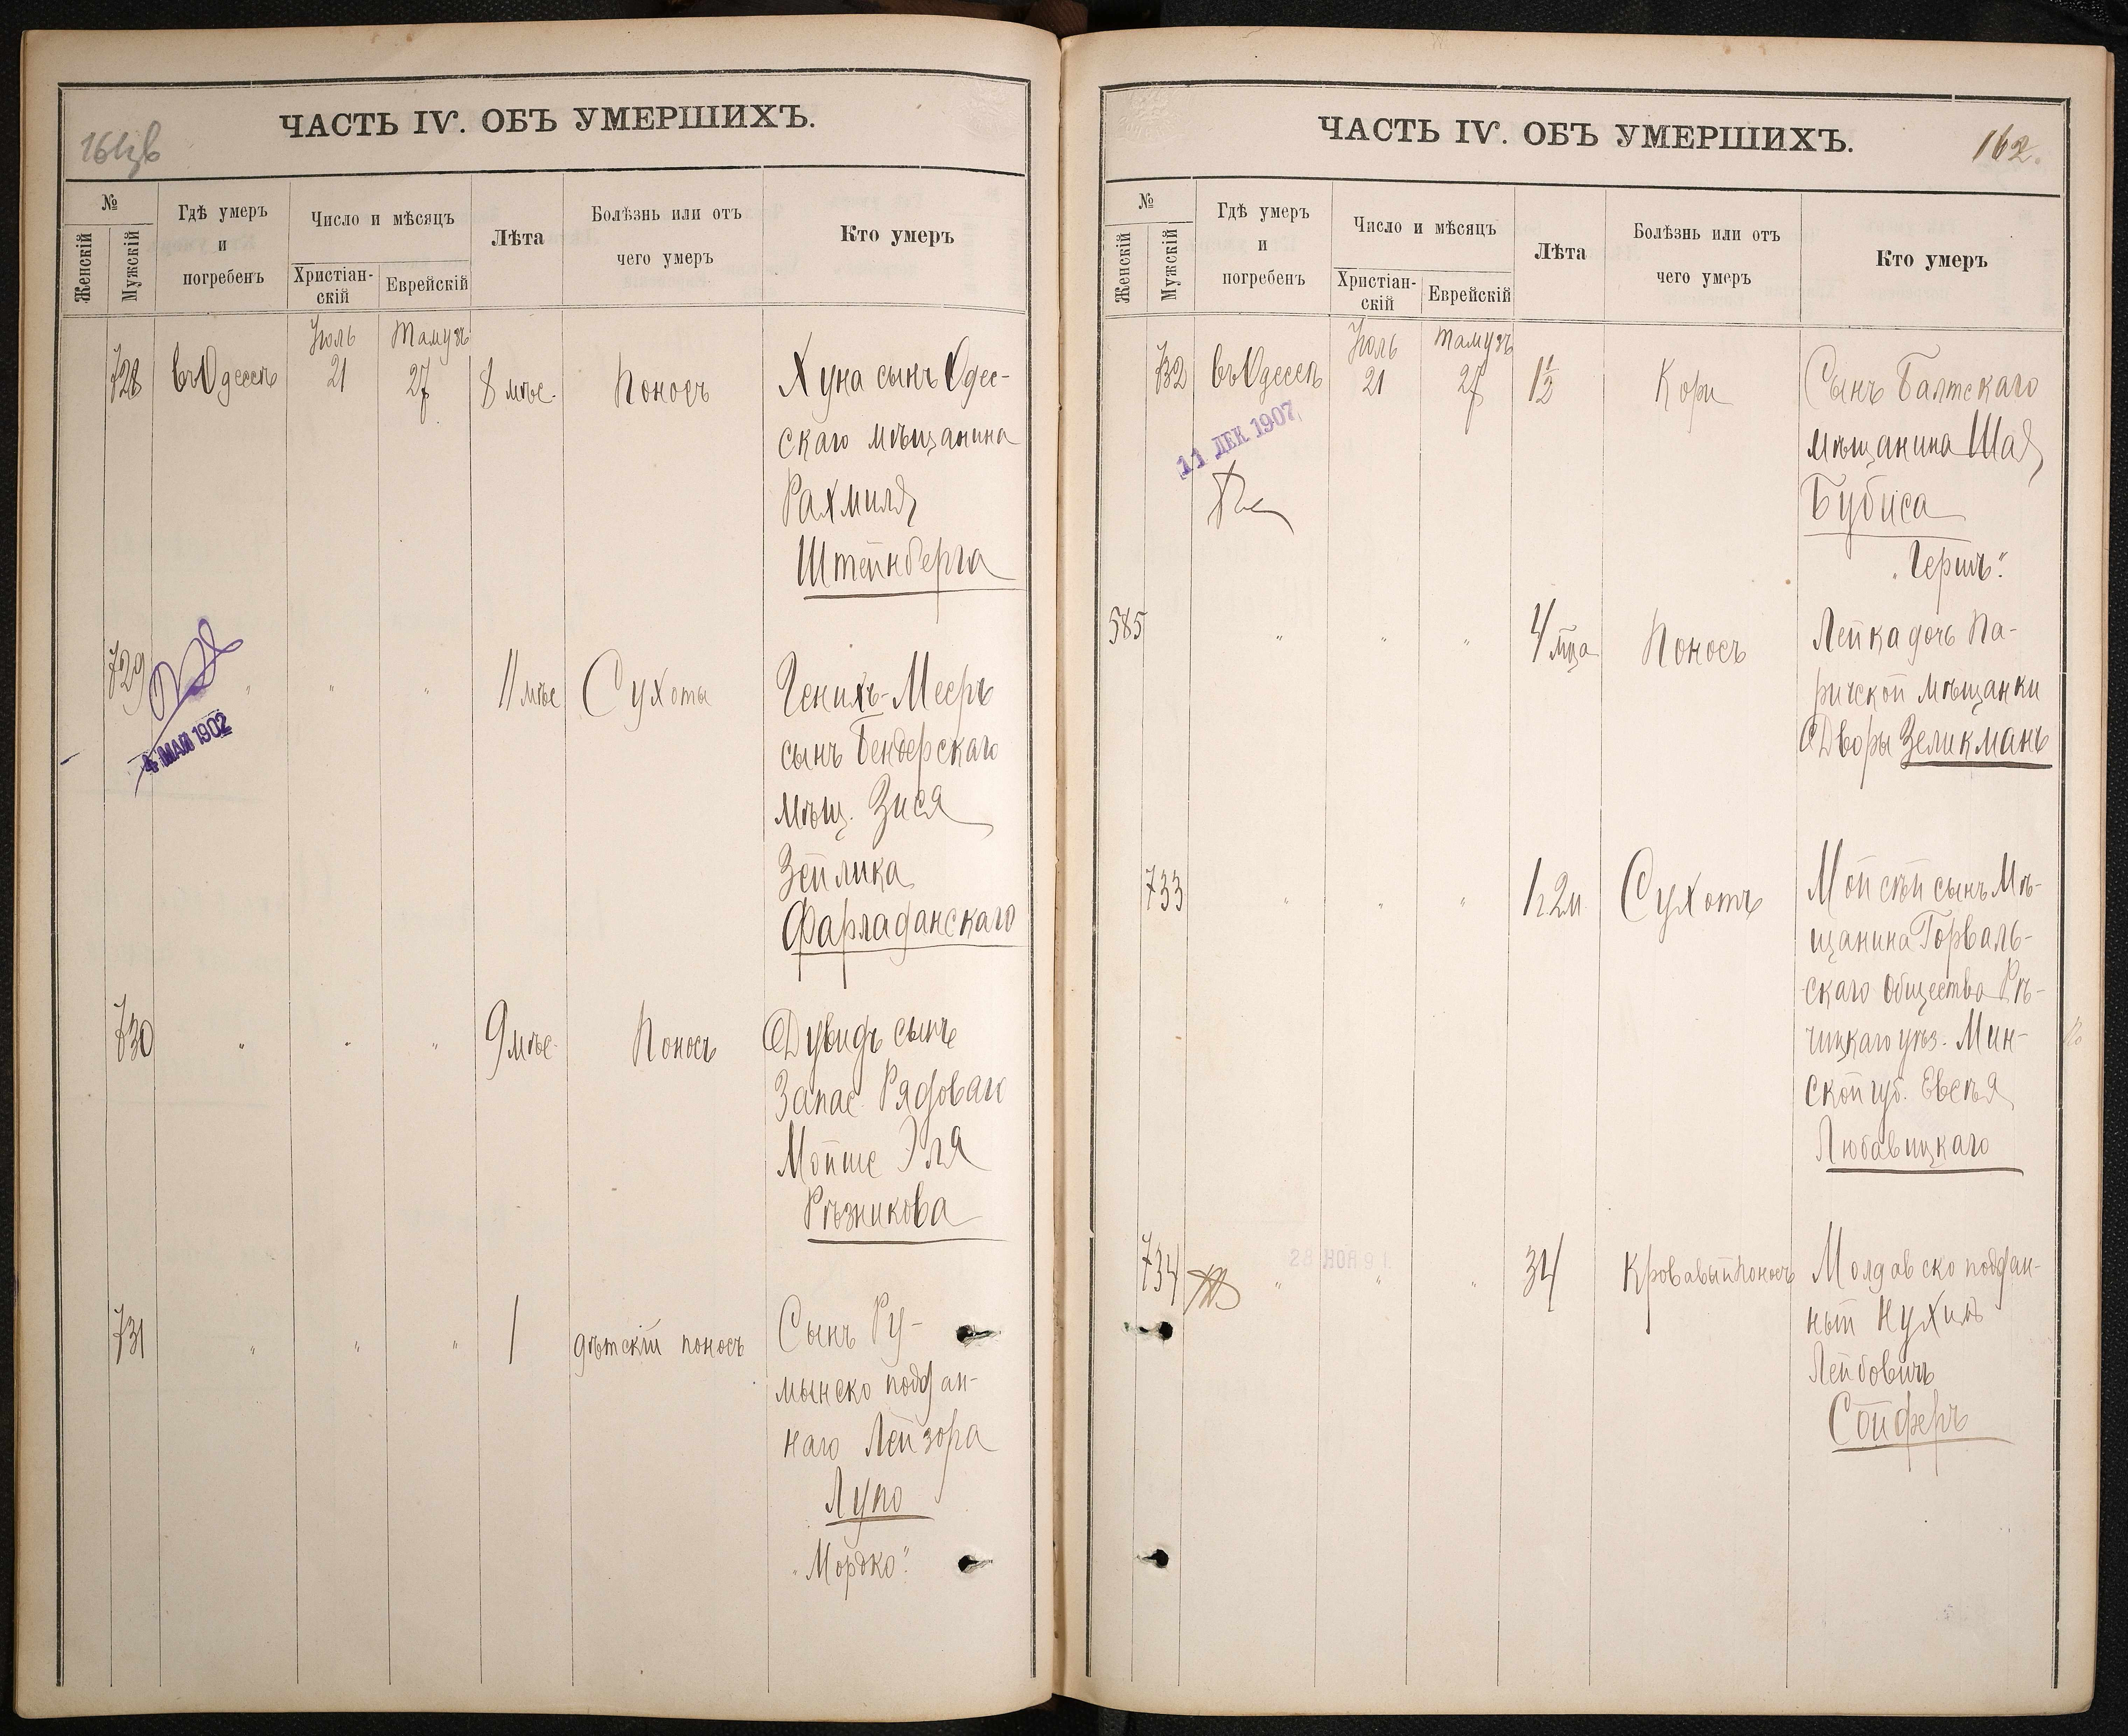 ЧАСТЬ IV. ОБЪ УМЕРШИХЪ.
№
Женскій
Мужскій
Гдѣ умеръ
и
погребенъ
Число и мѣсяцъ
Христіан-
скій
Еврейскій
Лѣта
Болѣзнь или отъ
чего умеръ
Кто умеръ
Іюль Тамузъ
728 въ Одессѣ 21 27 8 мѣс. Поносъ Хуна сынъ Одес-
скаго мѣщанина
Рахмиля
Штейнберга
729 " " " 11 мѣс Сухоты Генихъ-Мееръ
сынъ Бендерскаго
мѣщ. Зися
Зейлика
Фарладанскаго
4 МАЙ 1902
730 " " " 9 мѣс. Поносъ Дувидъ сынъ
Запас. Рядоваго
Мойше Эля
Рѣзникова
731 " " " 1 дѣтскій поносъ Сынъ Ру-
мынско поддан-
наго Лейзора
Лупо
"Мордко".
ЧАСТЬ IV. ОБЪ УМЕРШИХЪ.
162.
№
Женскій
Мужскій
Гдѣ умеръ
и
погребенъ
Число и мѣсяцъ
Христіан-
скій
Еврейскій
Лѣта
Болѣзнь или отъ
чего умеръ
Кто умеръ
Іюль Тамузъ
732 въ Одессѣ 21 27 1½ Кори Сынъ Балтскаго
мѣщанина Шая
Бубиса
"Гершъ".
11 ДЕК 1907
585 " " " 4 мца Поносъ Лейка дочь Па-
ричской мѣщанки
Дворы Зеликманъ
733 " " " 1 г. 2 м. Сухотъ Мойсѣй сынъ Мѣ-
щанина Горваль-
скаго Общества Рѣ-
чицкаго уѣз. Мин-
ской губ. Евсѣя
Любавицкаго
28 НОЯ 91
734 " " " 34 Кровавый поносъ Молдавско поддан-
ный Нухимъ
Лейбовичъ
Сойферъ